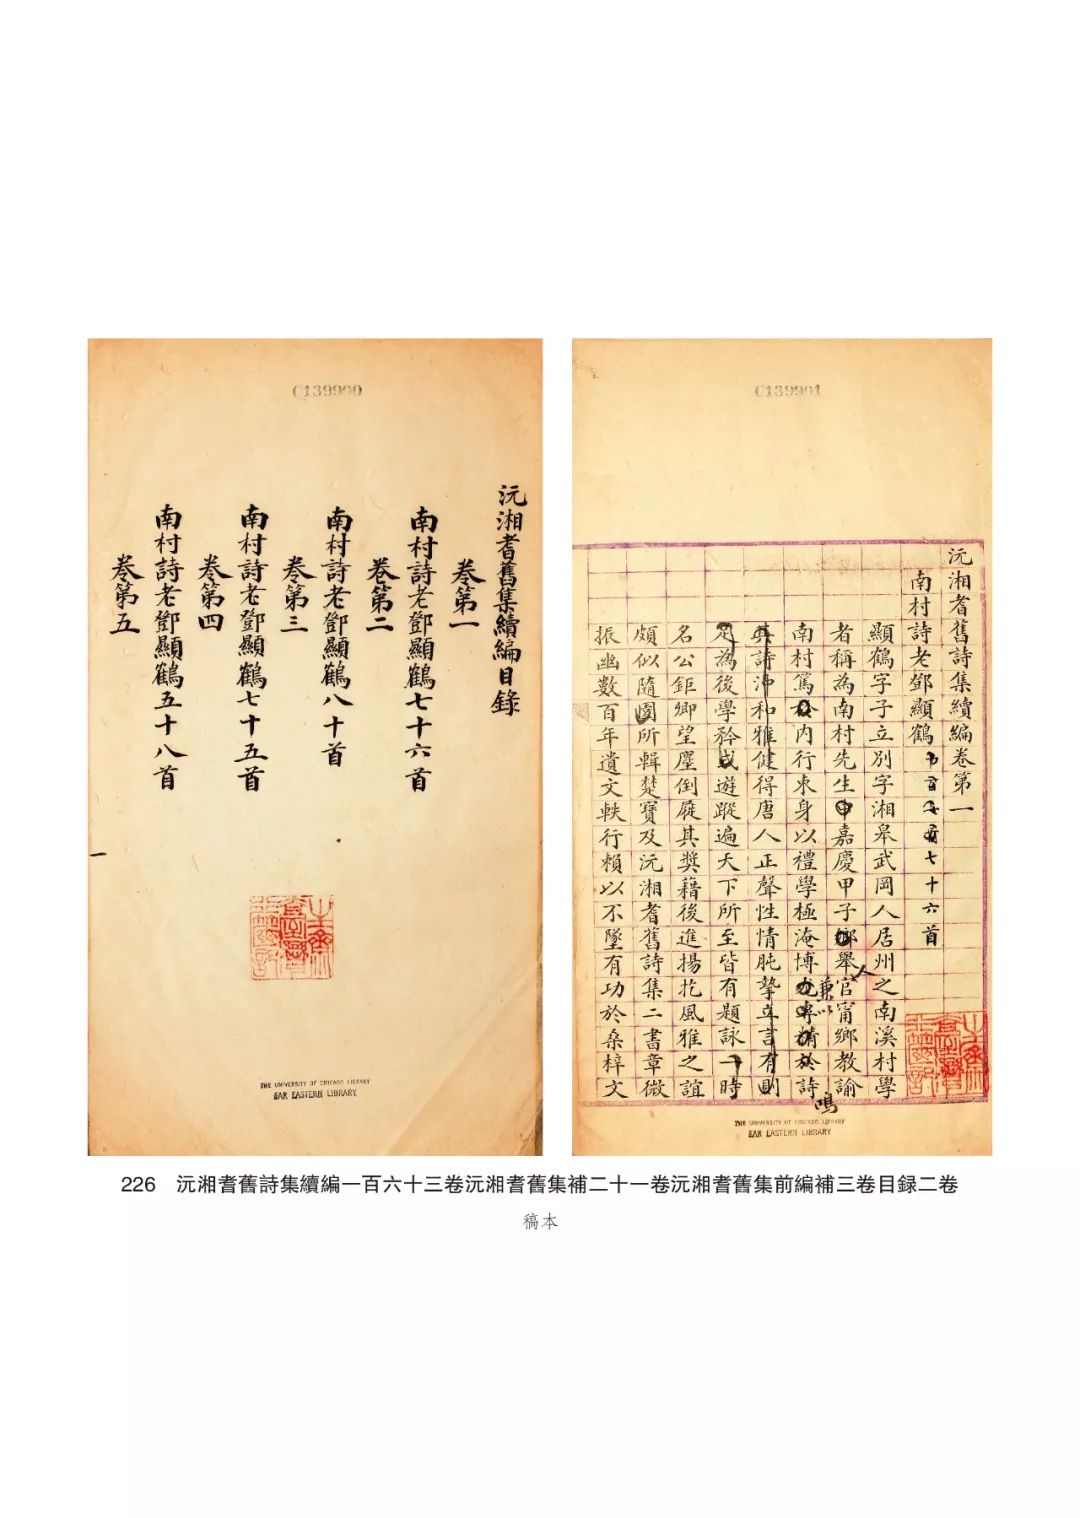 C139900
沅湘耆舊集續編目錄
卷第一
南村詩老鄧顯鶴七十六首
卷第二
南村詩老鄧顯鶴八十首
卷第三
南村詩老鄧顯鶴七十五首
卷第四
南村詩老鄧顯鶴五十八首
卷第五
THE UNIVERSITY OF CHICAGO LIBRARY
FAR EASTERN LIBRARY
C139901
沅湘耆舊詩集續編卷第一
南村詩老鄧顯鶴七十六首
顯鶴字子立別字湘皋武岡人居州之南溪村學
者稱為南村先生中嘉慶甲子鄉舉人官甯鄉教諭
南村篤於內行束身以禮學極淹博兼以詩鳴
其詩沖和雅健得唐人正聲性情肫摯立言有則
足為後學矜式遊蹤遍天下所至皆有題詠一時
名公鉅卿望塵倒屣其獎藉後進揚扢風雅之誼
頗似隨園所輯楚寶及沅湘耆舊詩集二書章微
振幽數百年遺文軼行賴以不墜有功於桑梓文
THE UNIVERSITY OF CHICAGO LIBRARY
FAR EASTERN LIBRARY
226 沅湘耆舊詩集續編一百六十三卷沅湘耆舊集補二十一卷沅湘耆舊集前編補三卷目録二卷
稿本